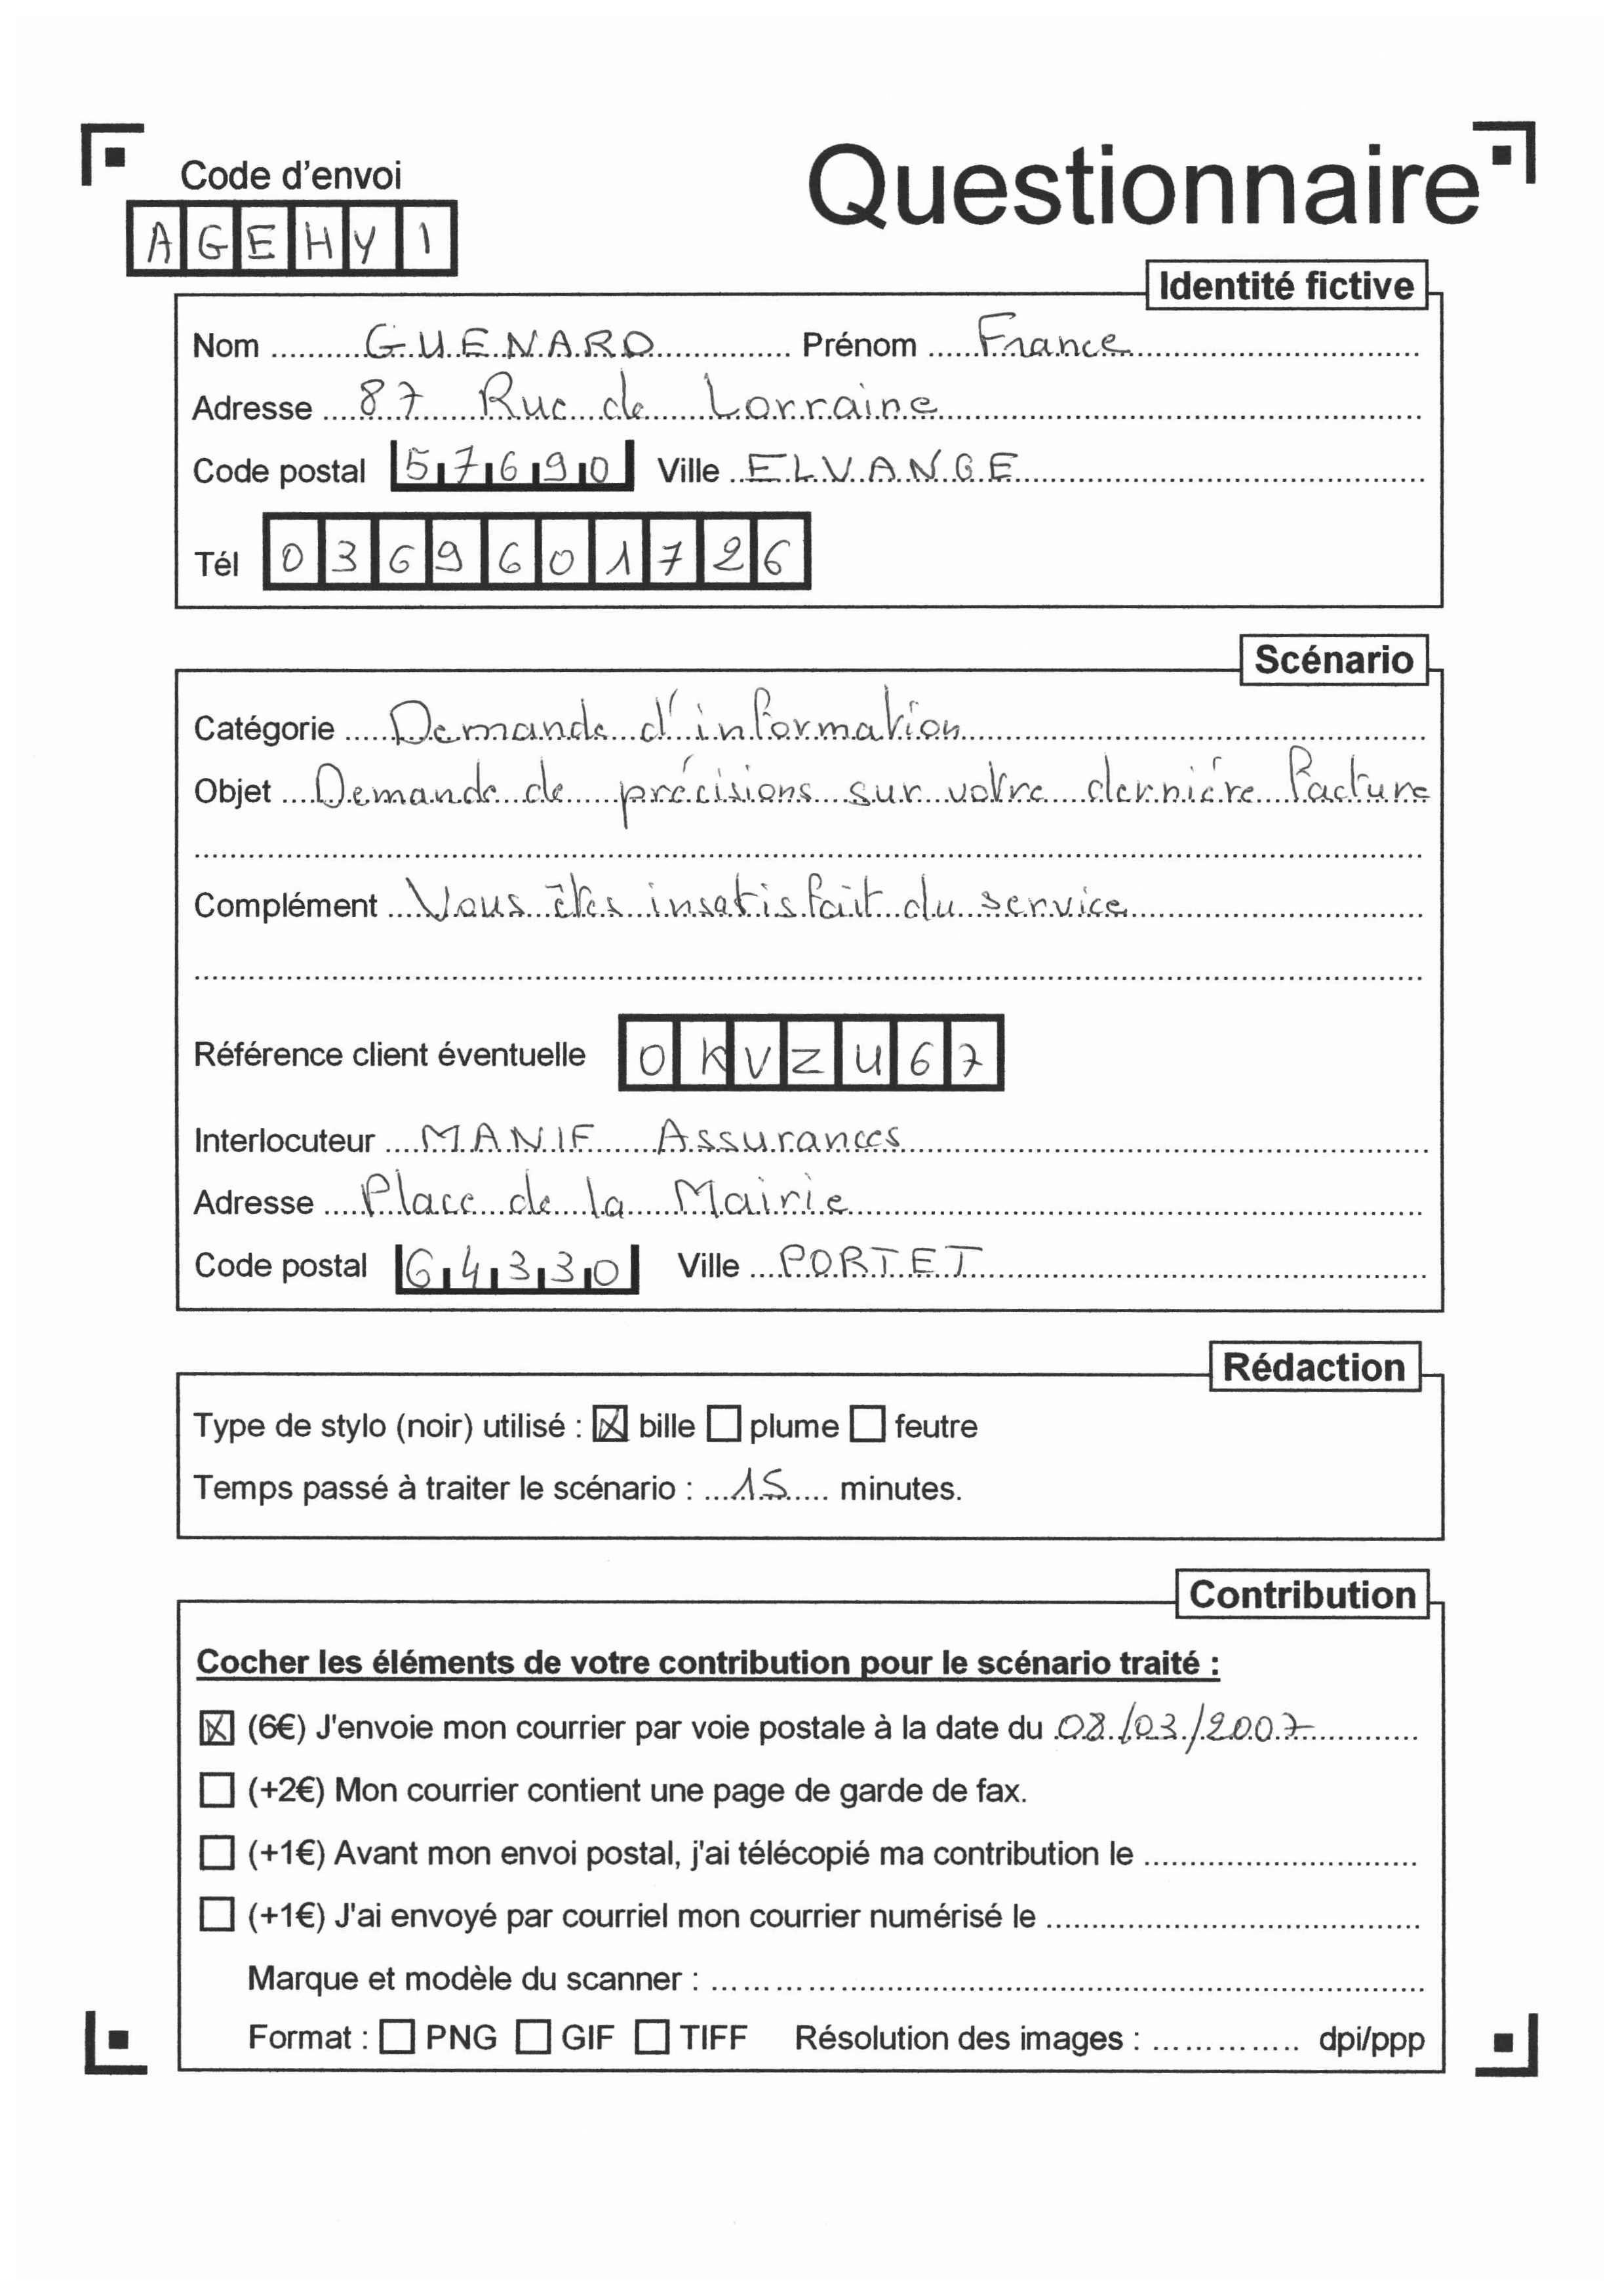 Code d'envoi
Questionnaire
A G E H Y 1
Identité fictive
Nom GUENARD Prénom France
Adresse 87 Rue de Lorraine
Code postal 57690 Ville ELVANGE
Tél 0369601726
Scénario
Catégorie Demande d'information
Objet Demande de précisions sur votre dernière facture
Complément Vous êtes insatisfait du service
Référence client éventuelle OKVZU67
Interlocuteur MANIF Assurances
Adresse Place de la Mairie
Code postal 64330 Ville PORTET
Rédaction
Type de stylo (noir) utilisé : ☒ bille ☐ plume ☐ feutre
Temps passé à traiter le scénario : 15 minutes.
Contribution
Cocher les éléments de votre contribution pour le scénario traité :
☒ (6€) J'envoie mon courrier par voie postale à la date du 08/03/2007
☐ (+2€) Mon courrier contient une page de garde de fax.
☐ (+1€) Avant mon envoi postal, j'ai télécopié ma contribution le
☐ (+1€) J'ai envoyé par courriel mon courrier numérisé le
Marque et modèle du scanner :
Format : ☐ PNG ☐ GIF ☐ TIFF Résolution des images : dpi/ppp